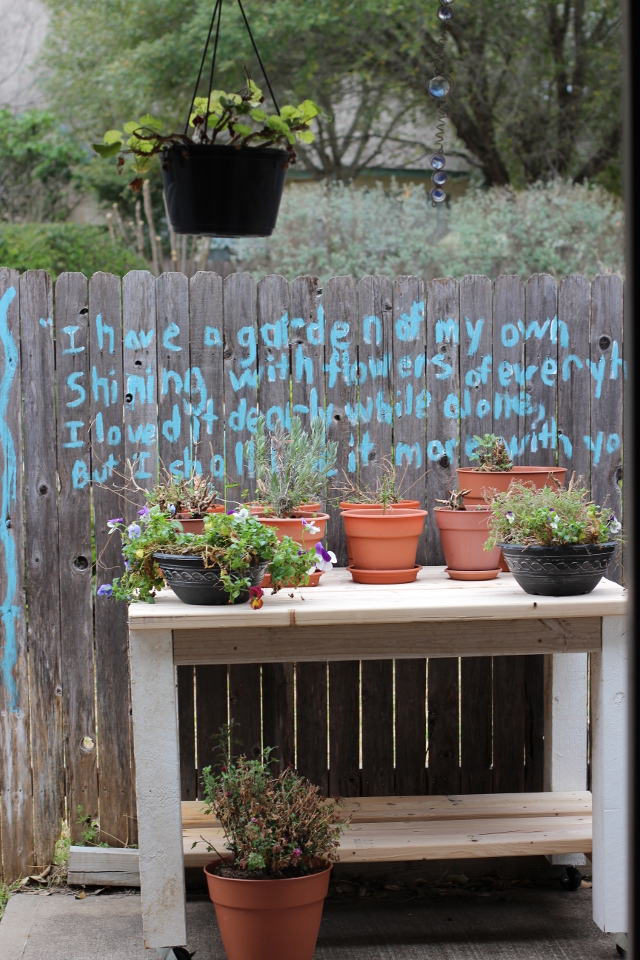 "I have a garden of my own
Shining with flowers of every h
I loved it dearly while alone,
But I shall it more with yo